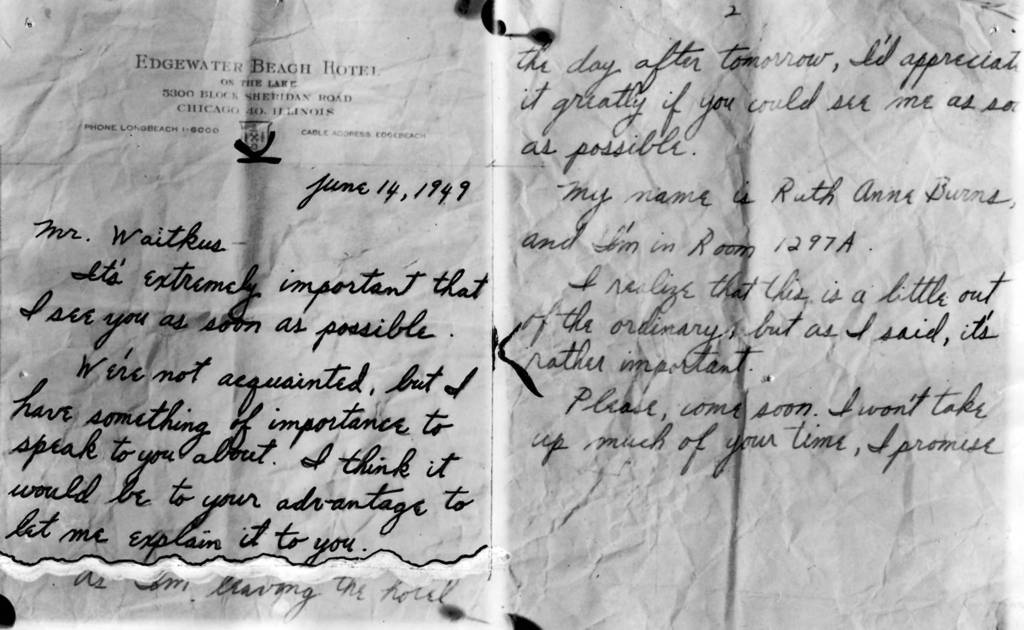 EDGEWATER BEACH HOTEL
ON THE LAKE
5300 BLOCK SHERIDAN ROAD
CHICAGO 40, ILLINOIS
PHONE LONGBEACH 1-6000
CABLE ADDRESS, EDGEBEACH
June 14, 1949
Mr. Waitkus
It's extremely important that
I see you as soon as possible.
We're not acquainted, but I
have something of importance to
speak to you about. I think it
would be to your advantage to
let me explain it to you.
As I'm leaving the hotel
2
the day after tomorrow, I'd appreciat
it greatly if you could see me as so
as possible.
My name is Ruth Anne Burns,
and I'm in Room 1297A.
I realize that this is a little out
of the ordinary, but as I said, it's
rather important.
Please, come soon. I won't take
up much of your time, I promise